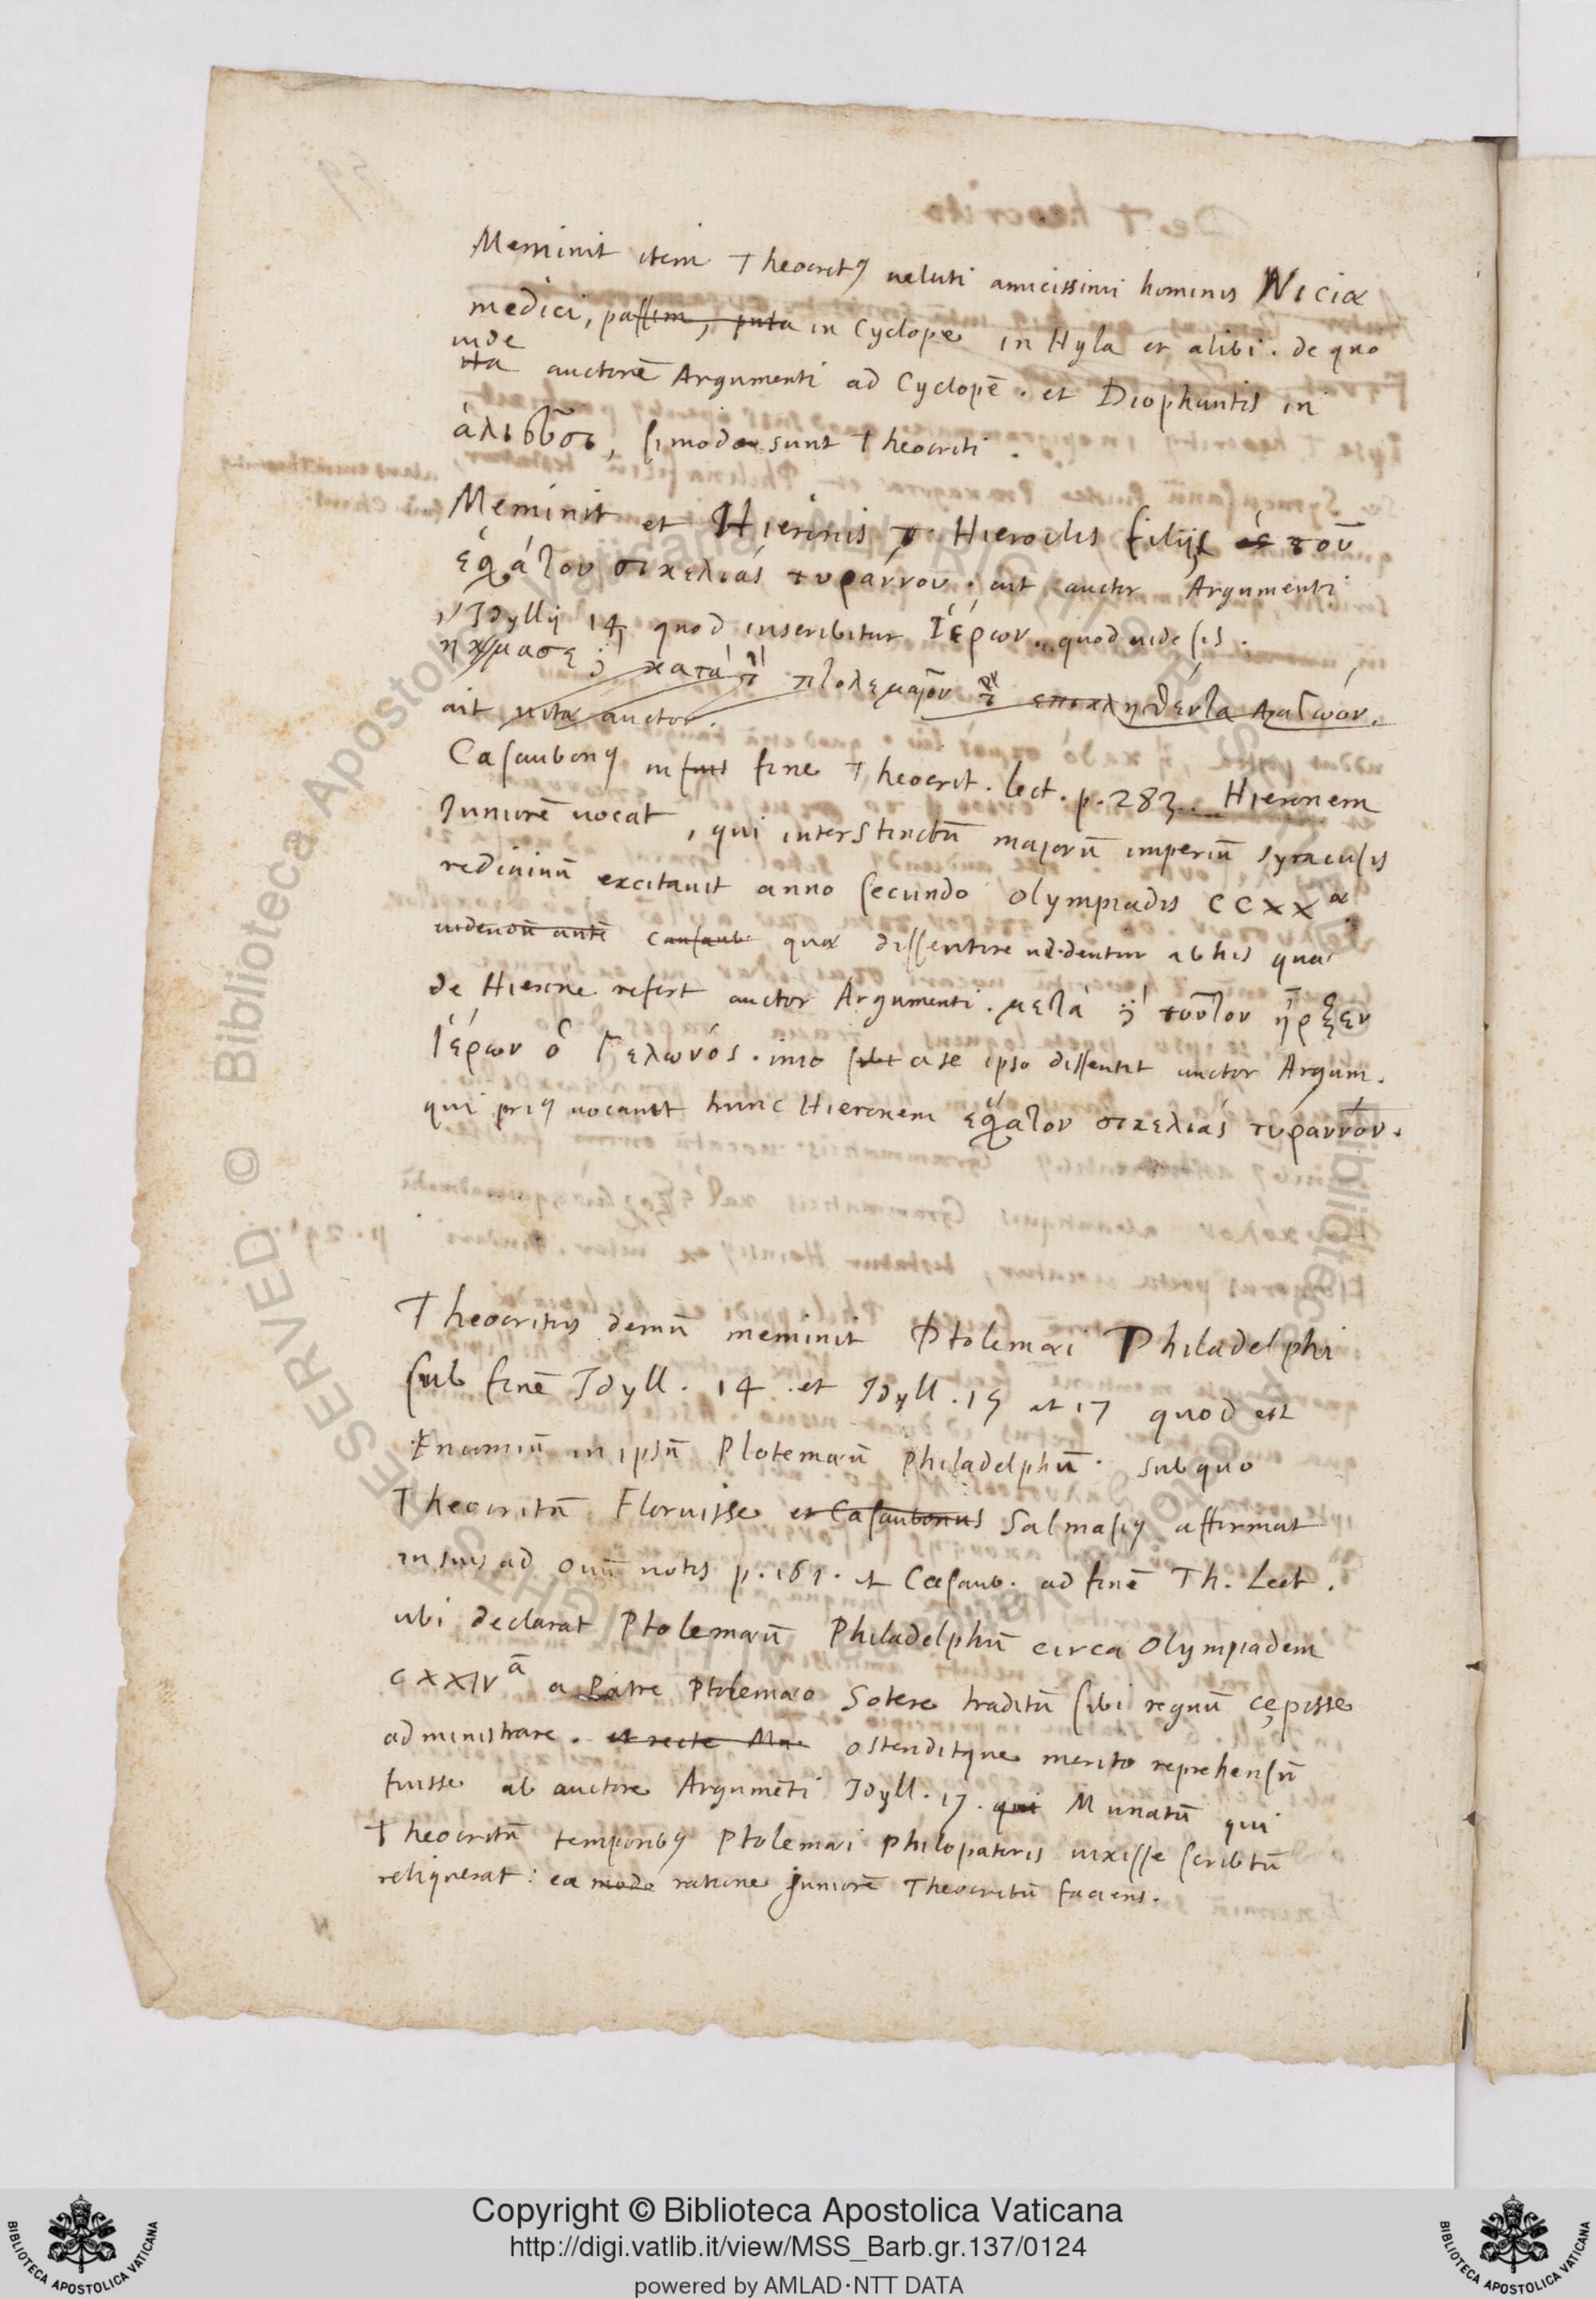 Meminit item Theocritꝯ ueluti amicissimi hominis Niciæ
medici, passim, puta in Cyclope in Hyla et alibi. de quo
uide
ita auctorē Argumenti ad Cyclopē. et Diophantis in
ἁλιεῦσι, si modo sunt Theocriti.
Meminit et Hieronis Hieroclis filij τοῦ
ἐσχάτου σικελίας τυράννου. ait auctor Argumenti
Idyllij 14 quod inscribitur Ἱέρων. quod uide sis.
ἤκμασε δὲ κατὰ τὸν πτολεμαῖον τὸν επικληθέντα Λαγωόν.
ait uitæ auctor
Casaubonꝯ in suis fine Theocrit. lect. p. 283. Hieronem
Juniorē uocat, qui interstinctū majorū imperiū syracusis
rediuiuū excitauit anno secundo olympiadis CCXXæ
Casaub. quæ dissentire uidentur ab his quæ
de Hierone refert auctor Argumenti. μετὰ δὲ τοῦτον ἦρξεν
Ἱέρων ὁ Γελωνός. imo sibi a se ipso dissentit auctor Argum.
qui priꝯ uocauit hunc Hieronem ἔσχατον σικελίας τύραννον.
Theocritus demū meminit Ptolemæi Philadelphi
sub finē Idyll. 14. et Idyll. 15 et 17 quod est
Encomiū in ipsū Plotemæū Philadelphū. sub quo
Theocritū Floruisse et Casaubonus Salmasiꝯ affirmat
in suis ad ouū notis p. 161. et Casaub. ad finē Th. Lect.
ubi declarat Ptolemæū Philadelphū circa Olympiadem
CXXIVā a Patre Ptolemæo Sotere traditū sibi regnū cępisse
administrare. et recte Mu ostenditque merito reprehensū
fuisse ab auctore Argumēti Idyll. 17. qui Munatū qui
Theocritū temporibꝯ Ptolemæi philopatoris uixisse scribtū
reliquerat: ea modo ratione Juniorē Theocritū faciens.
Copyright © Biblioteca Apostolica Vaticana
http://digi.vatlib.it/view/MSS_Barb.gr.137/0124
powered by AMLAD·NTT DATA
BIBLIOTECA APOSTOLICA VATICANA
BIBLIOTECA APOSTOLICA VATICANA